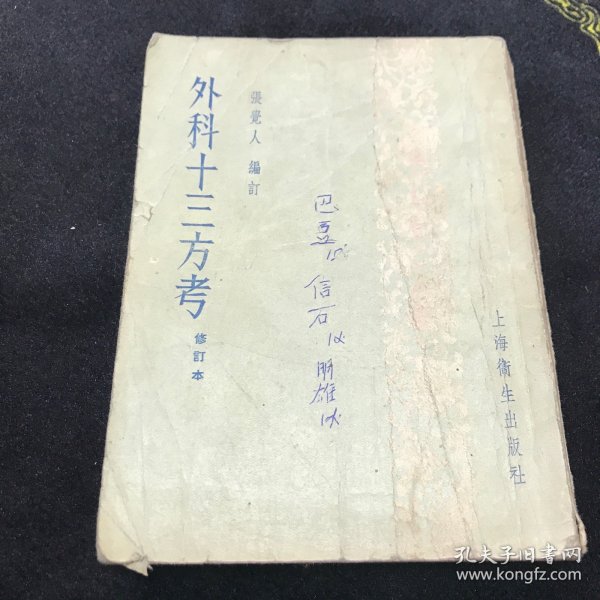 外科十三方考
修訂本
張覺人 編訂
巴豆 信石 明雄
上海衞生出版社
孔夫子旧书网
www.kongfz.com